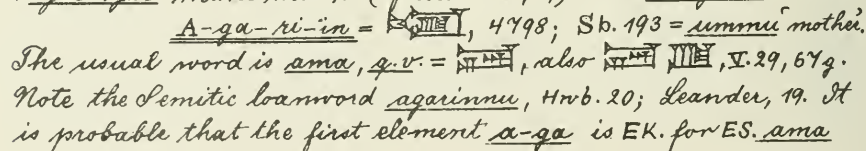 A-ga-ri-in = , 4798; Sb. 193 = ummu mother.
The usual word is ama, q.v. = , also , V. 29, 67g.
Note the Semitic loanword agarinnu, Hwb. 20; Leander, 19. It
is probable that the first element a-ga is EK. for ES. ama